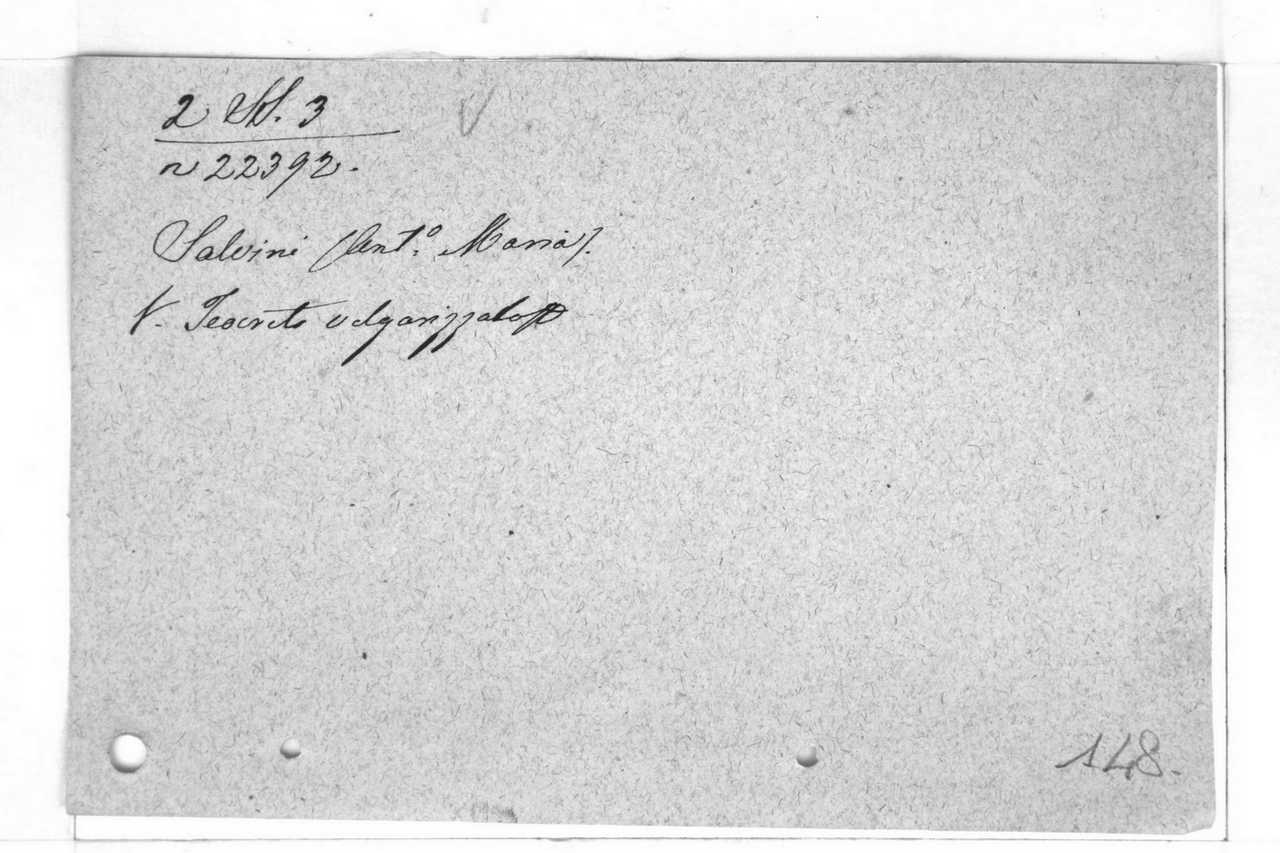 2 St. 3
n 22392.
Salvini (Ant.º Maria).
V. Teocrito volgarizzato
148.